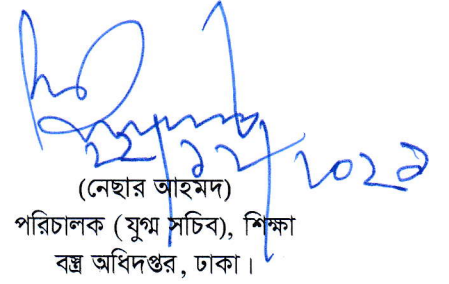 ২২/১২/২০২১
(নেছার আহমদ)
পরিচালক (যুগ্ম সচিব), শিক্ষা
বস্ত্র অধিদপ্তর, ঢাকা।